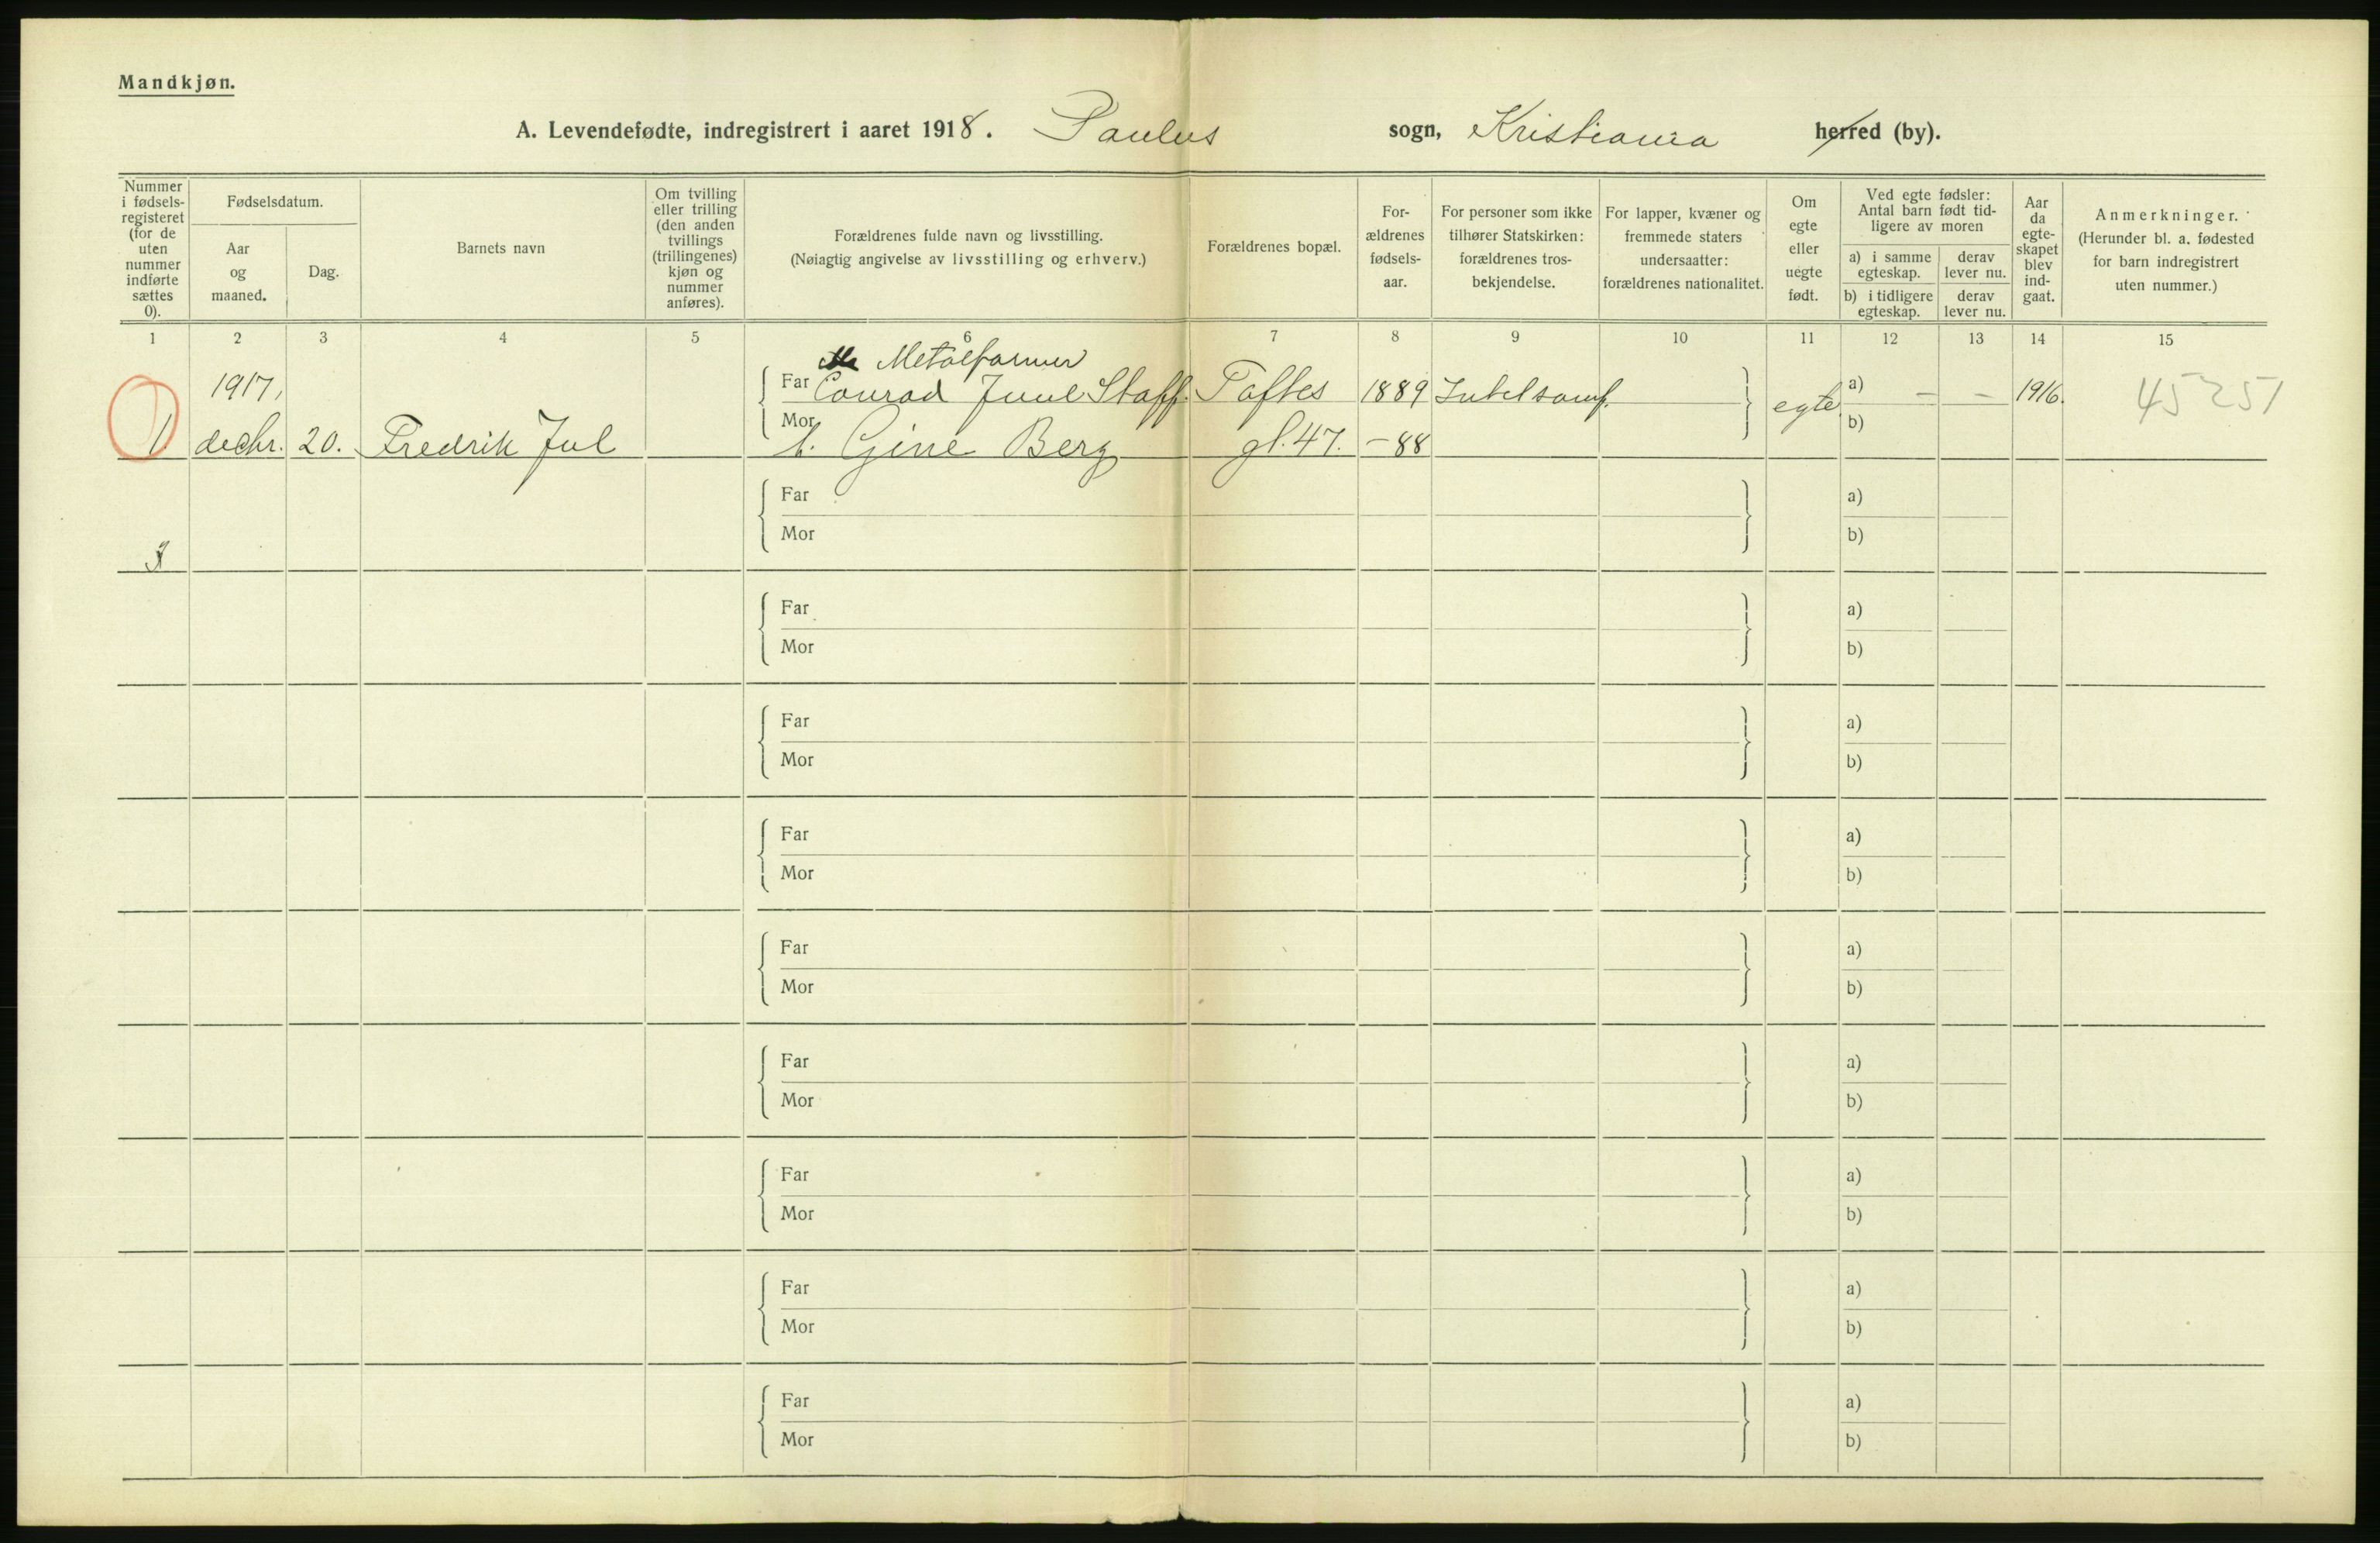 Mandkjøn.
A. Levendefødte, indregistrert i aaret 1918. Paulus sogn, Kristiania herred (by).
Nummer i fødsels-registeret (for de uten nummer indførte sættes 0).
Fødselsdatum.
Aar og maaned.
Dag.
Barnets navn
Om tvilling eller trilling (den anden tvillings (trillingenes) kjøn og nummer anføres).
Forældrenes fulde navn og livsstilling.
(Nøiagtig angivelse av livsstilling og erhverv.)
Forældrenes bopæl.
For-ældrenes fødsels-aar.
For personer som ikke tilhører Statskirken: forældrenes tros-bekjendelse.
For lapper, kvæner og fremmede staters undersaatter: forældrenes nationalitet.
Om egte eller uegte født.
Ved egte fødsler: Antal barn født tid-ligere av moren
a) i samme egteskap.
derav lever nu.
b) i tidligere egteskap.
derav lever nu.
Aar da egte-skapet blev ind-gaat.
Anmerkninger.
(Herunder bl. a. fødested for barn indregistrert uten nummer.)
1 2 3 4 5 6 7 8 9 10 11 12 13 14 15
Metalformer
1917, Far Conrad Juul Staff. Toftes 1889 egte a) - - 1916. 45251
1. decbr. 20. Fredrik Jul Mor f. Gine Berg gt. 47. -88 b)
Far a)
Mor b)
Far a)
Mor b)
Far a)
Mor b)
Far a)
Mor b)
Far a)
Mor b)
Far a)
Mor b)
Far a)
Mor b)
Far a)
Mor b)
Far a)
Mor b)